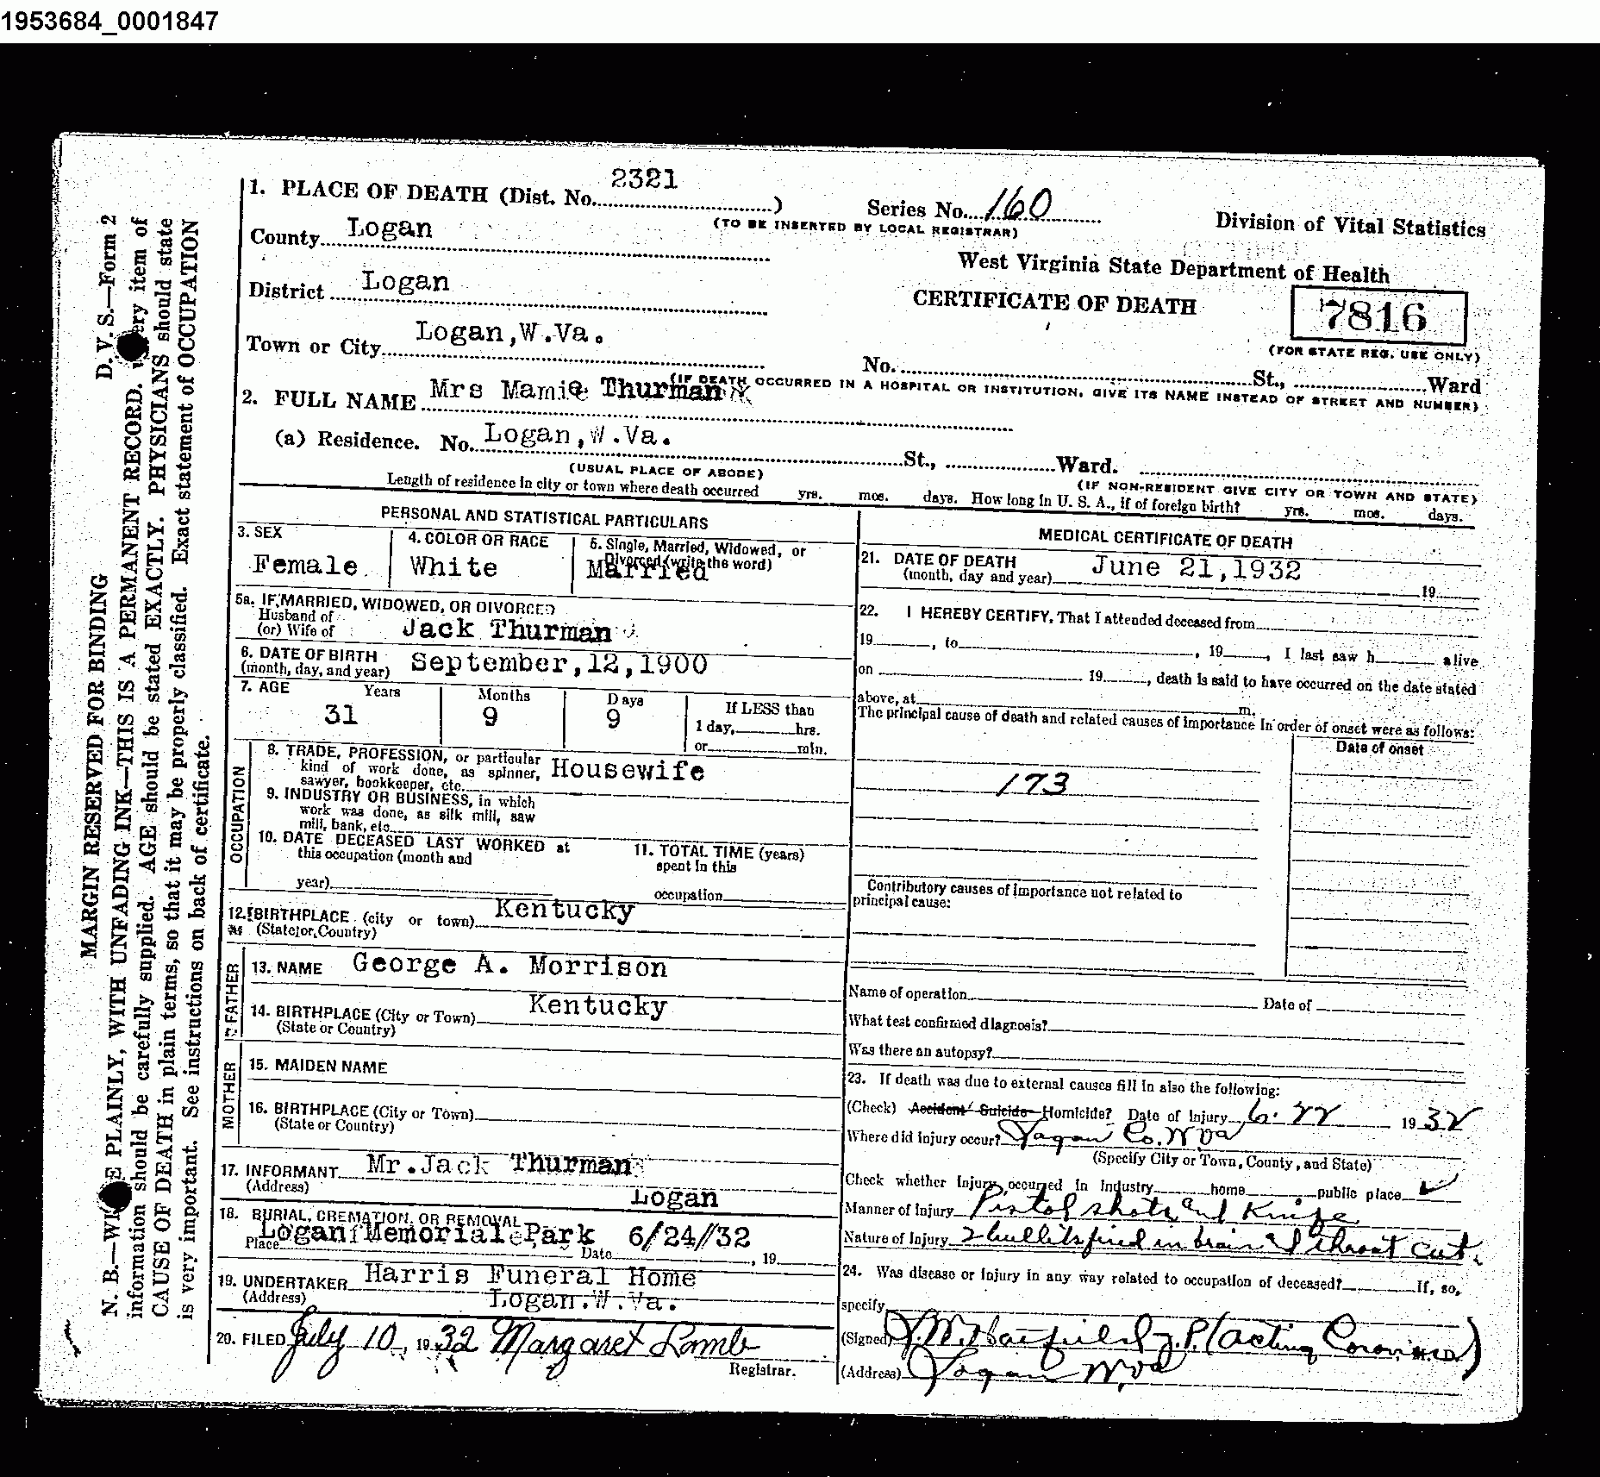 1953684_0001847
D. V. S.—Form 2
MARGIN RESERVED FOR BINDING
N. B.— PLAINLY, WITH UNFADING INK—THIS IS A PERMANENT RECORD. item of
information should be carefully supplied. AGE should be stated EXACTLY. PHYSICIANS should state
CAUSE OF DEATH in plain terms, so that it may be properly classified. Exact statement of OCCUPATION
is very important. See instructions on back of certificate.
1. PLACE OF DEATH (Dist. No. 2321)
Series No. 160
(TO BE INSERTED BY LOCAL REGISTRAR)
Division of Vital Statistics
County Logan
West Virginia State Department of Health
District Logan
CERTIFICATE OF DEATH
7816
(FOR STATE REG. USE ONLY)
Town or City Logan,W.Va.
No. St., Ward
(IF DEATH OCCURRED IN A HOSPITAL OR INSTITUTION, GIVE ITS NAME INSTEAD OF STREET AND NUMBER)
2. FULL NAME Mrs Mamie Thurman
(a) Residence. No. Logan,W.Va. St., Ward.
(USUAL PLACE OF ABODE)
(IF NON-RESIDENT GIVE CITY OR TOWN AND STATE)
Length of residence in city or town where death occurred yrs. mos. days. How long in U. S. A., if of foreign birth? yrs. mos. days.
PERSONAL AND STATISTICAL PARTICULARS
3. SEX
Female
4. COLOR OR RACE
White
5. Single, Married, Widowed, or
Divorced (write the word)
Married
5a. IF MARRIED, WIDOWED, OR DIVORCED
Husband of
(or) Wife of Jack Thurman
6. DATE OF BIRTH
(month, day, and year) September,12,1900
7. AGE Years Months Days If LESS than
31 9 9 1 day, hrs.
or min.
OCCUPATION
8. TRADE, PROFESSION, or particular
kind of work done, as spinner, Housewife
sawyer, bookkeeper, etc.
9. INDUSTRY OR BUSINESS, in which
work was done, as silk mill, saw
mill, bank, etc.
10. DATE DECEASED LAST WORKED at
this occupation (month and
year)
11. TOTAL TIME (years)
spent in this
occupation
12. BIRTHPLACE (city or town) Kentucky
(State or Country)
FATHER
13. NAME George A. Morrison
14. BIRTHPLACE (City or Town) Kentucky
(State or Country)
MOTHER
15. MAIDEN NAME
16. BIRTHPLACE (City or Town)
(State or Country)
17. INFORMANT Mr.Jack Thurman
(Address) Logan
18. BURIAL, CREMATION, OR REMOVAL
Place Logan Memorial Park Date 6/24//32, 19
19. UNDERTAKER Harris Funeral Home
(Address) Logan.W.Va.
20. FILED July 10, 1932 Margaret Lamb
Registrar.
MEDICAL CERTIFICATE OF DEATH
21. DATE OF DEATH
(month, day and year) June 21,1932 19
22. I HEREBY CERTIFY, That I attended deceased from
19 , to , 19 , I last saw h alive
on 19 , death is said to have occurred on the date stated
above, at m.
The principal cause of death and related causes of importance in order of onset were as follows:
Date of onset
173
Contributory causes of importance not related to
principal cause:
Name of operation Date of
What test confirmed diagnosis?
Was there an autopsy?
23. If death was due to external causes fill in also the following:
(Check) Accident Suicide Homicide? Date of Injury 6-22 1932
Where did injury occur? Logan Co. W Va
(Specify City or Town, County, and State)
Check whether Injury occurred in Industry home public place ✓
Manner of Injury Pistol shots and Knife
Nature of Injury 2 bullits fired in brain & throat cut.
24. Was disease or injury in any way related to occupation of deceased? If, so,
specify
(Signed) Hatfield J.P. (Acting Coroner)
(Address) Logan W Va